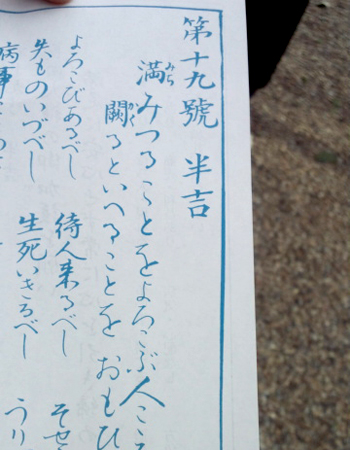 第十九號 半吉
満みつることをよろこぶ人こ
闕るといへることを おもひ
よろこびあるべし 待人来るべし
失ものいづべし 生死いきるべし